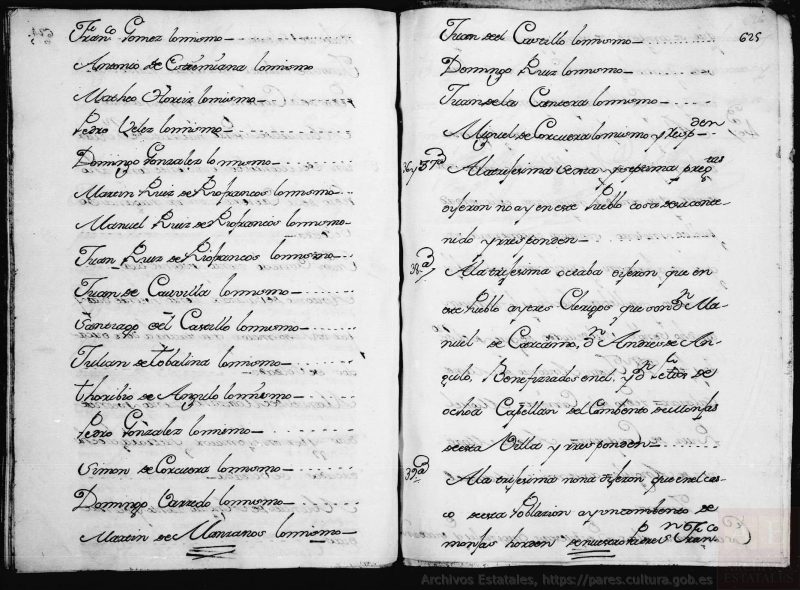 Fran.co Gomez lo mismo
Antonio de Estremiana lo mismo
Matheo Hortiz lo mismo
Pedro Velez lo mismo
Domingo Gonzalez lo mismo
Martin Ruiz de Riofrancos lo mismo
Manuel Ruiz de Riofrancos lo mismo
Juan Ruiz de Riofrancos lo mismo
Juan de lo mismo
Santiago del Castillo lo mismo
Julian de tobalina lo mismo
thoribio de Angulo lo mismo
Pedro Gonzalez lo mismo
Simon de Corcuera lo mismo
Domingo lo mismo
Martin de Manzanos lo mismo
625
Juan del Castillo lo mismo
Domingo Ruiz lo mismo
Juan de la Cantera lo mismo
Miguel de Corcuera lo mismo y resp.den
36 y 37a A la trijesima sexta y septima preg.tas
dijeron no ay en este Pueblo cosa de su conte-
nido y rresponden
38a A la trijesima octaba dijeron que en
este Pueblo ay tres Clerigos que son Dn Ma-
nuel de Carcamo, Dn Andres de An-
gulo, Benefizados en el, y Dn de
ochoa Capellan del Combento de Monjas
de esta Villa y rresponden
39a A la trijesima nona dijeron que en el cas-
co de esta Poblazion ay un combento de
monjas horden de nuestro Pe Sn Fran.co
Archivos Estatales, https://pares.cultura.gob.es